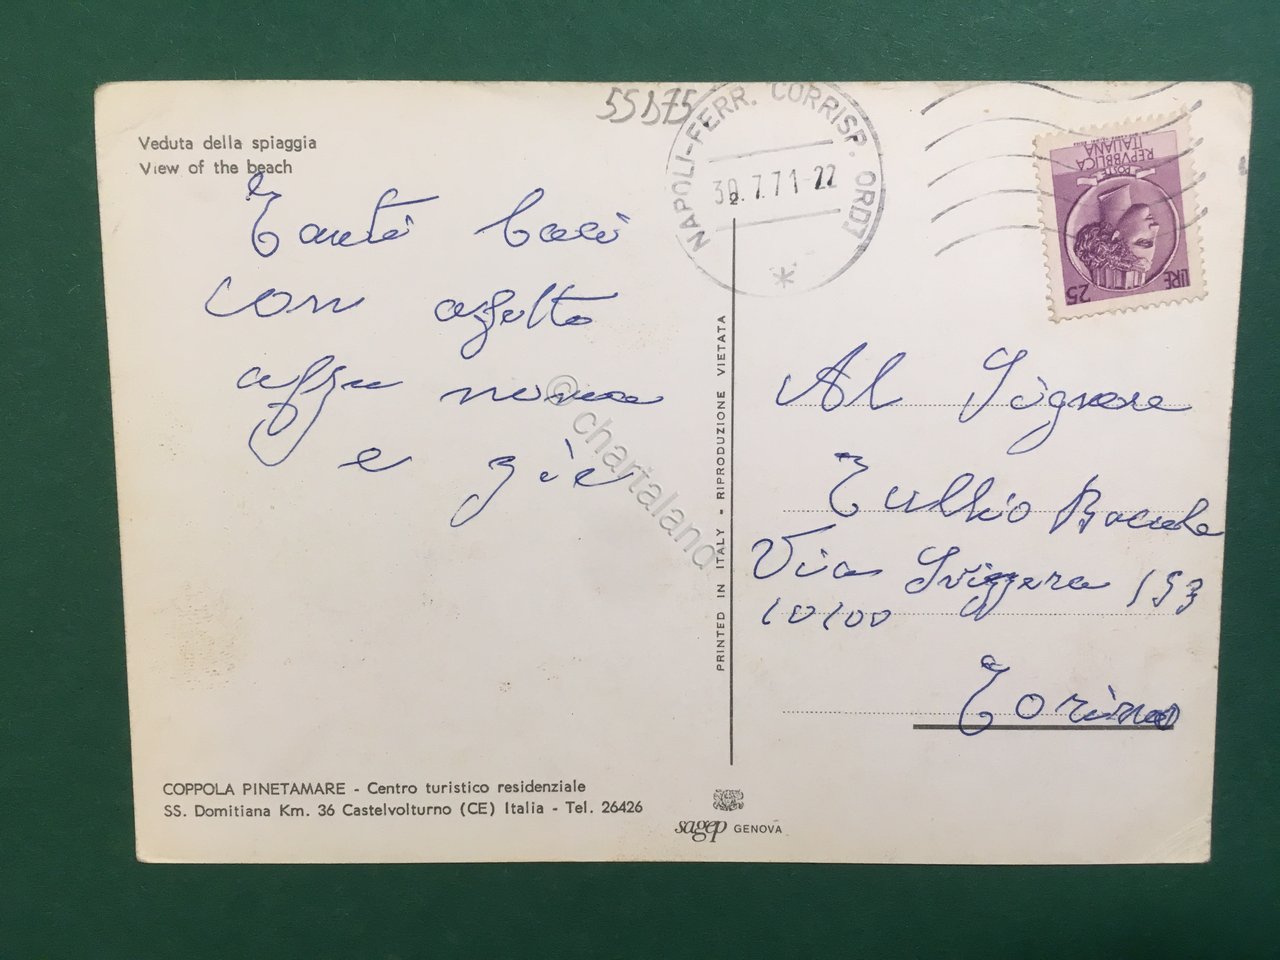 55575
NAPOLI-FERR. CORRISP. ORD
30.7.71-22
REPVBBLICA ITALIANA
POSTE
LIRE 25
Veduta della spiaggia
View of the beach
Tanti baci
con affetto
nonna
e
Al Signore
Tullio
Via Svizzera 153
10100
Torino
PRINTED IN ITALY - RIPRODUZIONE VIETATA
© chartaland
COPPOLA PINETAMARE - Centro turistico residenziale
SS. Domitiana Km. 36 Castelvolturno (CE) Italia - Tel. 26426
sagep GENOVA